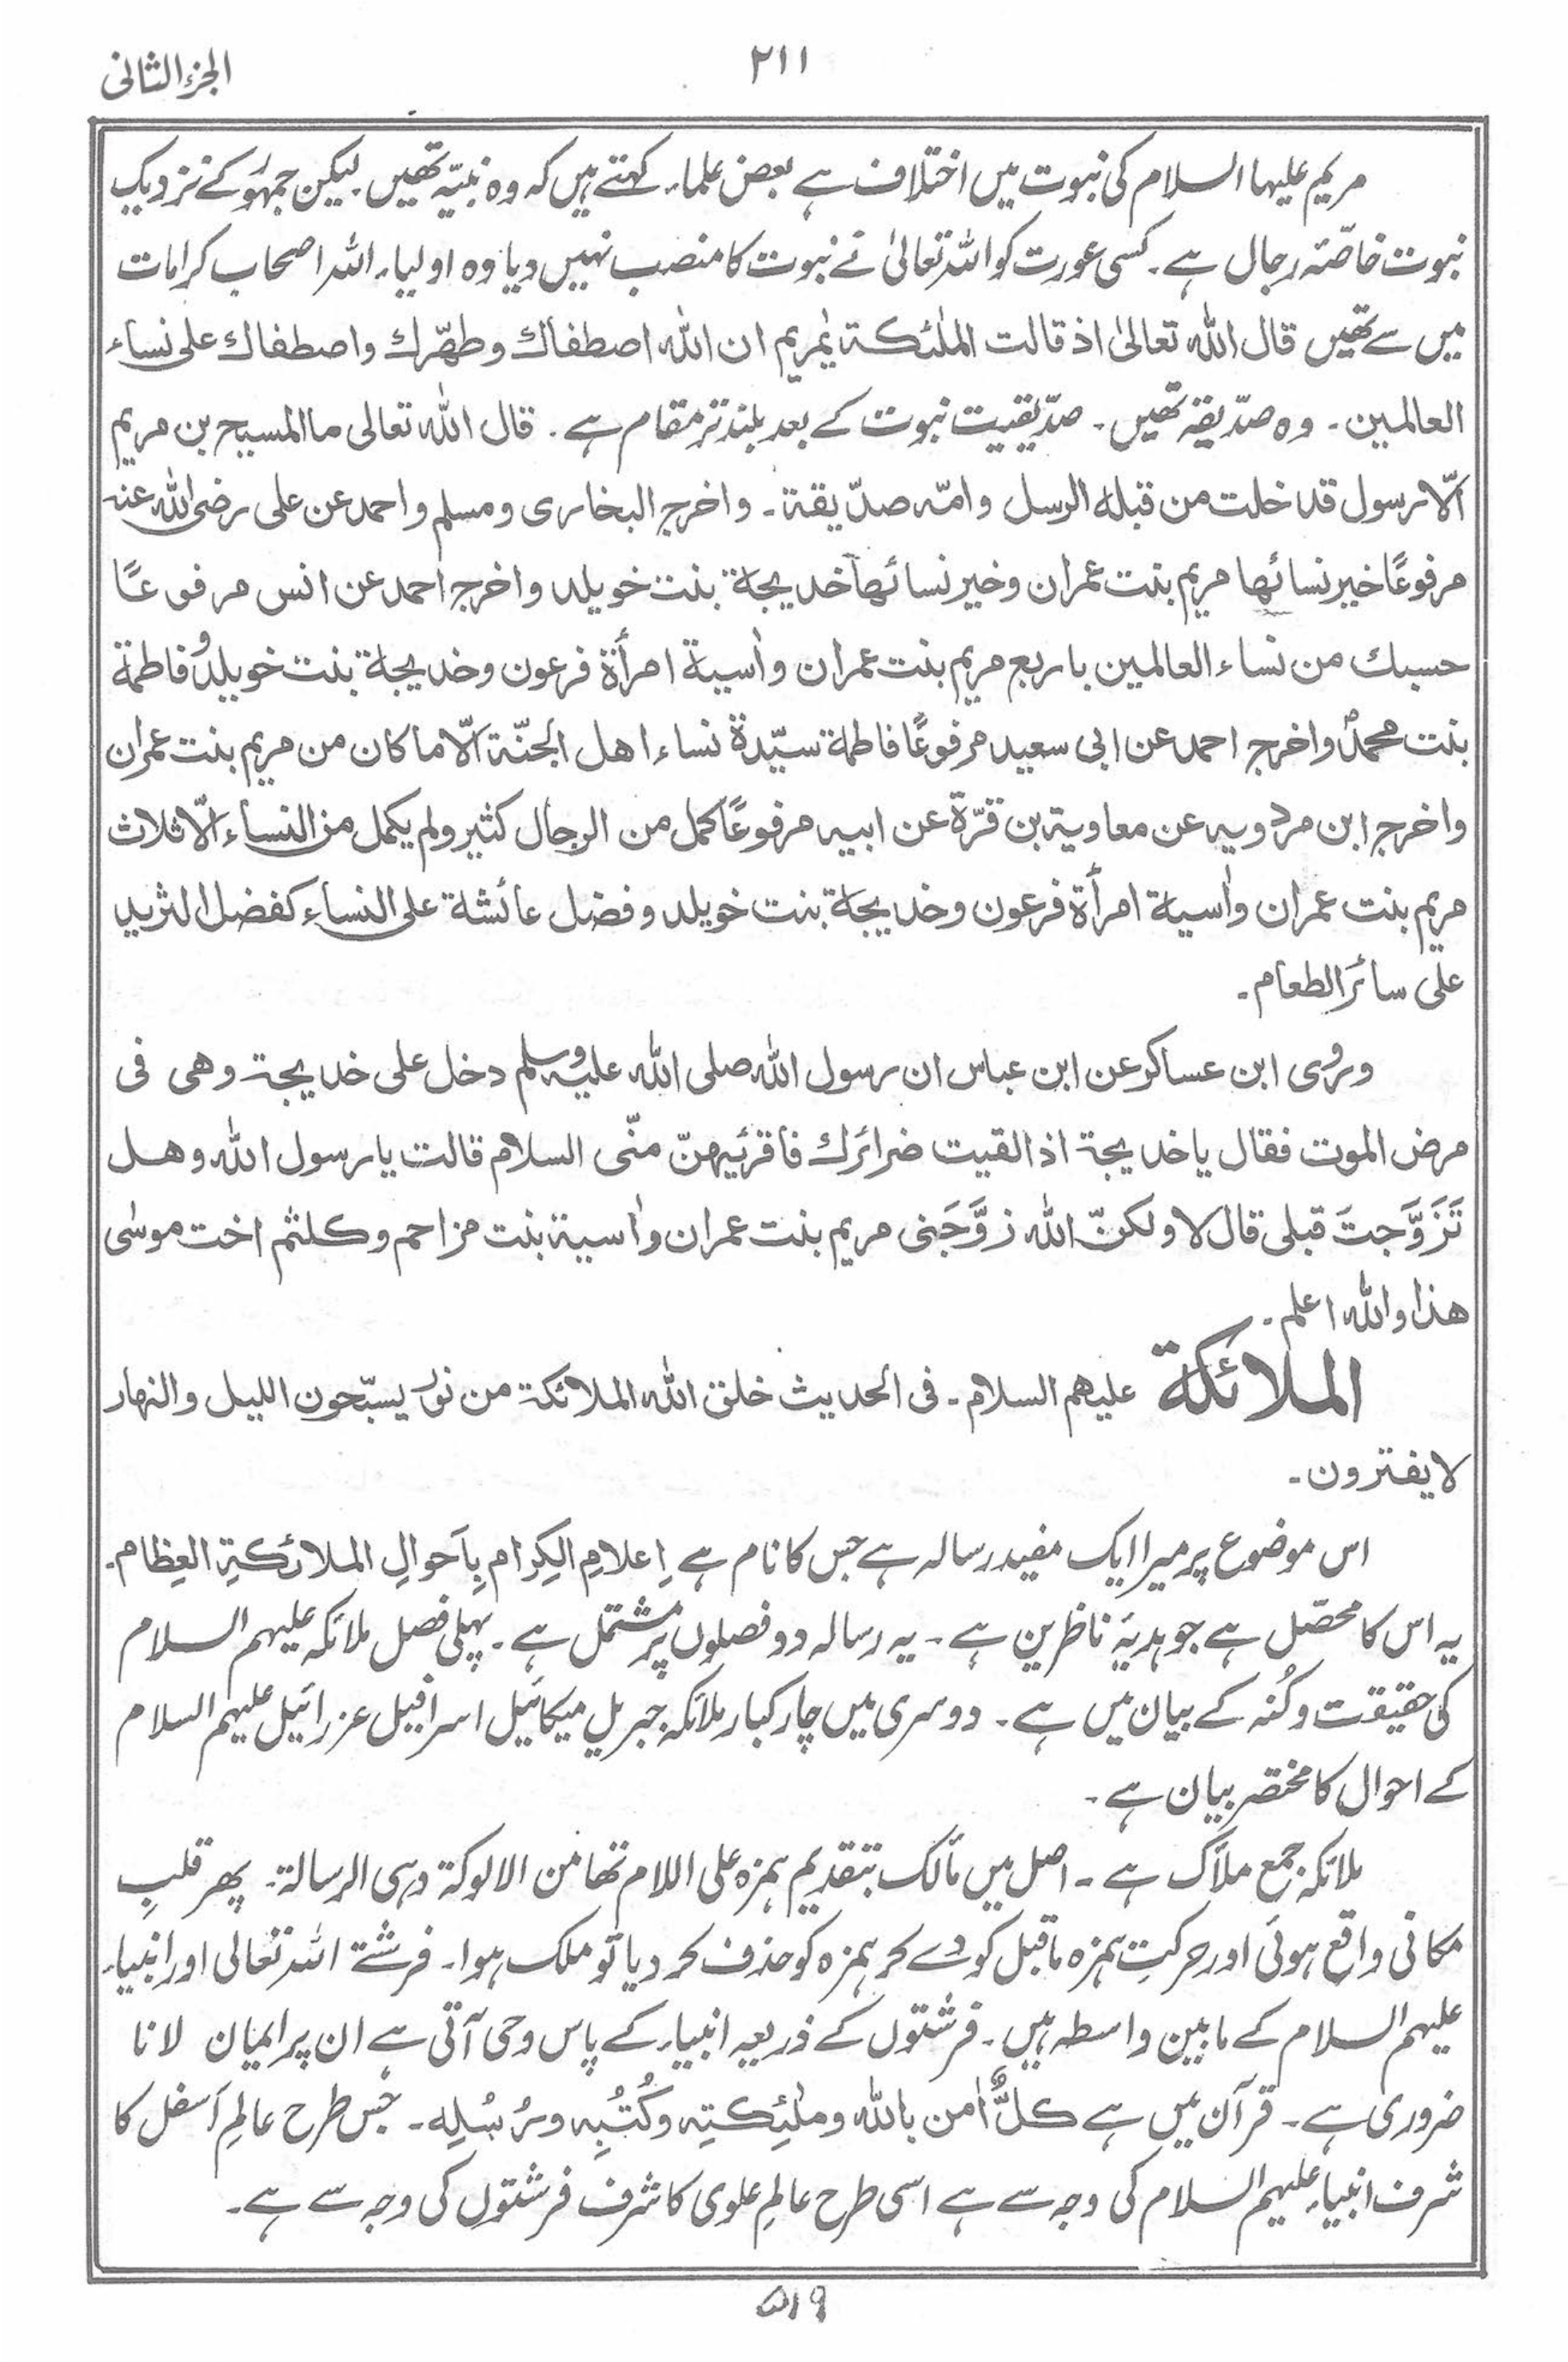 الجزء الثانی
٢١١
مریم علیہا السلام کی نبوت میں اختلاف ہے بعض علماء کہتے ہیں کہ وہ نبیّہ تھیں۔ لیکن جمہور کے نزدیک
نبوت خاصّۂ رجال ہے۔ کسی عورت کو اللہ تعالیٰ نے نبوت کا منصب نہیں دیا وہ اولیاء اللہ اصحاب کرامات
میں سے تھیں قال اللہ تعالیٰ اذ قالت الملٰئکة یٰمریم ان اللہ اصطفاك وطهّرك واصطفاك علی نساء
العالمین۔ وہ صدّیقہ تھیں۔ صدّیقیت نبوت کے بعد بلند تر مقام ہے۔ قال اللہ تعالی ما المسیح بن مریم
الّا رسول قد خلت من قبله الرسل وامّه صدّیقة۔ واخرج البخاری ومسلم واحمد عن علی رضی اللہ عنه
مرفوعًا خیر نسائها مریم بنت عمران وخیر نسائها خدیجة بنت خویلد واخرج احمد عن انس مرفوعًا
حسبك من نساء العالمین باربع مریم بنت عمران واٰسیة امرأة فرعون وخدیجة بنت خویلد وفاطمة
بنت محمدؐ واخرج احمد عن ابی سعید مرفوعًا فاطمة سیّدة نساء اهل الجنّة الّا ما کان من مریم بنت عمران
واخرج ابن مردویه عن معاویة بن قرّة عن ابیه مرفوعًا کمل من الرجال کثیر ولم یکمل من النساء الّا ثلاث
مریم بنت عمران واٰسیة امرأة فرعون وخدیجة بنت خویلد وفضل عائشة علی النساء کفضل الثرید
علی سائر الطعام۔
وروٰی ابن عساکر عن ابن عباس ان رسول اللہ صلی اللہ علیه وسلم دخل علی خدیجة وهی فی
مرض الموت فقال یا خدیجة اذا لقیت ضرائرك فاقرئیهنّ منّی السلام قالت یا رسول اللہ وهل
تَزَوَّجتَ قبلی قال لا ولکنّ اللہ زوَّجَنی مریم بنت عمران واٰسیة بنت مزاحم وکلثم اخت موسٰی
هذا واللہ اعلم۔
الملائکة علیهم السلام۔ فی الحدیث خلق اللہ الملائکة من نور یسبّحون اللیل والنهار
لا یفترون۔
اس موضوع پر میرا ایک مفید رسالہ ہے جس کا نام ہے اِعلامِ الکِرام بِاَحوالِ الملائکةِ العِظام۔
یہ اس کا محصّل ہے جو ہدیۂ ناظرین ہے۔ یہ رسالہ دو فصلوں پر مشتمل ہے۔ پہلی فصل ملائکہ علیہم السلام
کی حقیقت وکُنہ کے بیان میں ہے۔ دوسری میں چار کبار ملائکہ جبریل میکائیل اسرافیل عزرائیل علیہم السلام
کے احوال کا مختصر بیان ہے۔
ملائکہ جمع ملأک ہے۔ اصل میں مألک بتقدیم ہمزہ علی اللام تھا من الالوکة وہی الرسالة۔ پھر قلبِ
مکانی واقع ہوئی اور حرکتِ ہمزہ ماقبل کو دے کر ہمزہ کو حذف کر دیا تو ملک ہوا۔ فرشتے اللہ تعالی اور انبیاء
علیہم السلام کے مابین واسطہ ہیں۔ فرشتوں کے ذریعہ انبیاء کے پاس وحی آتی ہے ان پر ایمان لانا
ضروری ہے۔ قرآن میں ہے کلٌّ اٰمن باللہ وملٰئکتِه وکُتُبِه ورُسُلِه۔ جس طرح عالمِ اَسفل کا
شرف انبیاء علیہم السلام کی وجہ سے ہے اسی طرح عالمِ علوی کا شرف فرشتوں کی وجہ سے ہے۔
٥١٩